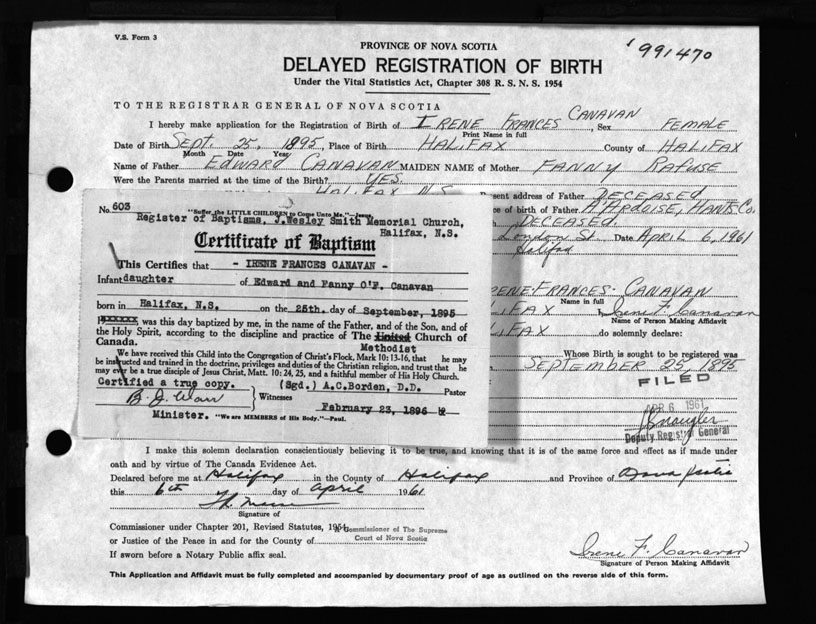 V.S. Form 3
PROVINCE OF NOVA SCOTIA
991470
DELAYED REGISTRATION OF BIRTH
Under the Vital Statistics Act, Chapter 308 R. S. N. S. 1954
TO THE REGISTRAR GENERAL OF NOVA SCOTIA
I hereby make application for the Registration of Birth of IRENE FRANCES CANAVAN Sex FEMALE
Print Name in full
Date of Birth Sept. 25, 1895, Place of Birth HALIFAX County of HALIFAX
Month Date Year
Name of Father EDWARD CANAVAN MAIDEN NAME of Mother FANNY Rafuse
Were the Parents married at the time of the Birth? YES
HALIFAX N.S. esent address of Father DECEASED
ce of birth of Father ARDOISE, HANTS Co.
DECEASED
London St. Date APRIL 6, 1961
Halifax
No. 603
"Suffer the LITTLE CHILDREN to Come Unto Me."—Jesus.
Register of Baptisms, J.Wesley Smith Memorial Church,
Halifax, N.S.
Certificate of Baptism
This Certifies that - IRENE FRANCES CANAVAN -
Infant daughter of Edward and Fanny O'F. Canavan
born in Halifax, N.S. on the 25th. day of September, 1895
was this day baptized by me, in the name of the Father, and of the Son, and of
the Holy Spirit, according to the discipline and practice of The United Church of
Canada. Methodist
We have received this Child into the Congregation of Christ's Flock, Mark 10: 13-16, that he may
be instructed and trained in the doctrine, privileges and duties of the Christian religion, and trust that he
may ever be a true disciple of Jesus Christ, Matt. 10: 24, 25, and a faithful member of His Holy Church.
Certified a true copy. (Sgd.) A.C.Borden, D.D. Pastor
Witnesses
February 23, 1896
Minister. "We are MEMBERS of His Body."—Paul.
RENE FRANCES CANAVAN
Name in full
FAX I, Irene F. Canavan
Name of Person Making Affidavit
FAX do solemnly declare:
Whose Birth is sought to be registered was
SEPTEMBER 25, 1895
FILED
APR 6 1961
Deputy Registrar General
I make this solemn declaration conscientiously believing it to be true, and knowing that it is of the same force and effect as if made under
oath and by virtue of The Canada Evidence Act.
Declared before me at Halifax in the County of Halifax and Province of Nova Scotia
this 6th day of April 1961
Signature of
Commissioner under Chapter 201, Revised Statutes, 1954, A Commissioner of The Supreme
Court of Nova Scotia
or Justice of the Peace in and for the County of
If sworn before a Notary Public affix seal.
Irene F. Canavan
Signature of Person Making Affidavit
This Application and Affidavit must be fully completed and accompanied by documentary proof of age as outlined on the reverse side of this form.